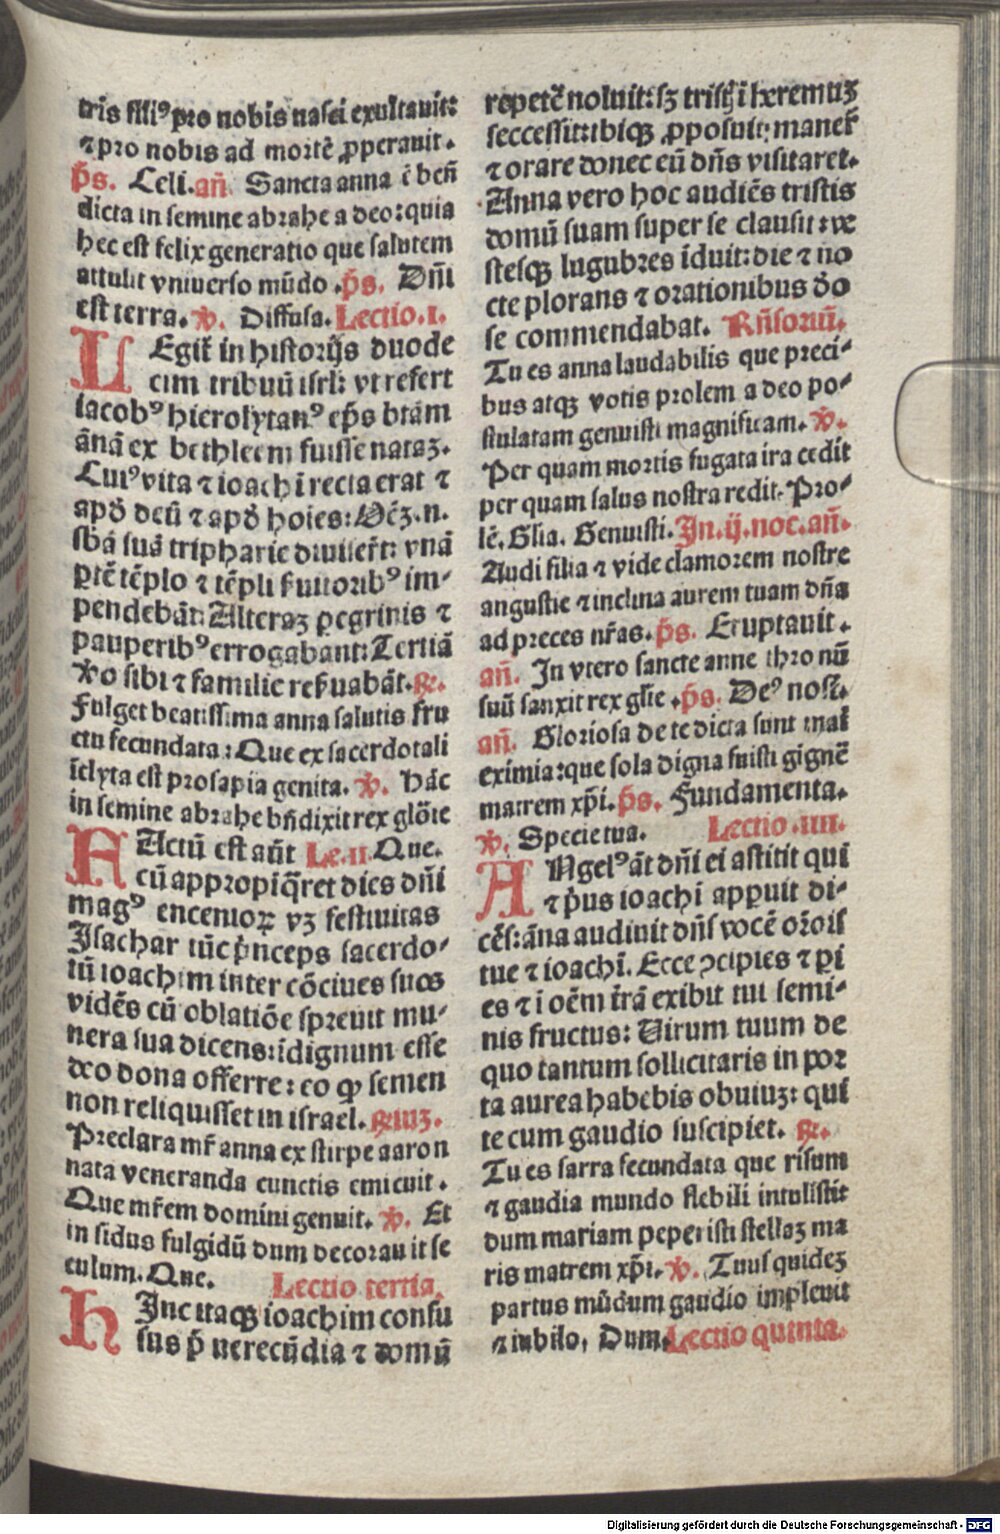 tris filiꝰ pro nobis nasci exultauit:
⁊ pro nobis ad mortē ꝓperauit.
p̄s. Celi. an̄. Sancta anna ē ben̄
dicta in semine abrahe a deo: quia
hec est felix generatio que salutem
attulit vniuerso mūdo. p̄s. Dn̄i
est terra. ℣. Diffusa. Lectio.i.
LEgit̄ in historijs duode
cim tribuū isrl: vt refert
iacobꝰ hierosolytanꝰ ep̄s btām
ānā ex bethleem fuisse nataꝫ.
Cuiꝰ vita ⁊ ioachī recta erat ⁊
apd̄ deū ⁊ apd̄ hoies: Oēꝫ.n.
sbām suā tripharie diuiser̄t: vnā
ꝑtē tēplo ⁊ tēpli s̄uitoribꝰ im-
pendebāt: Alteraꝫ ꝑegrinis ⁊
pauperibꝰ errogabant: Tertiā
v̄o sibi ⁊ familie res̄uabāt. ℟.
Fulget beatissima anna salutis fru
ctu fecundata: Que ex sacerdotali
īclyta est prosapia genita. ℣. Hāc
in semine abrahe bn̄dixit rex glōie
FActū est aūt Le.ii. Que.
cū appropīq̄ret dies dn̄i
magꝰ encenioꝝ vꝫ festiuitas
Isachar tūc p̄nceps sacerdo-
tū ioachim inter cōciues suos
vidēs cū oblatiōe spreuit mu-
nera sua dicens: īdignum esse
deo dona offerre: eo ꝙ semen
non reliquisset in israel. ℟iuꝫ.
Preclara mr̄ anna ex stirpe aaron
nata veneranda cunctis emicuit.
Que mr̄em domini genuit. ℣. Et
in sidus fulgidū dum decorauit se
culum. Que. Lectio tertia.
HInc itaqꝫ ioachim confu
sus p̄ uerecūdia ⁊ domū
repetē noluit: sꝫ tristis ī heremuꝫ
seccessit: ibiqꝫ ꝓposuit: maner̄
⁊ orare donec eū dn̄s visitaret.
Anna vero hoc audiēs tristis
domū suam super se clausit: ve
stesqꝫ lugubres īduit: die ⁊ no
cte plorans ⁊ orationibus d̄o
se commendabat. Rn̄soriū.
Tu es anna laudabilis que preci-
bus atqꝫ votis prolem a deo po-
stulatam genuisti magnificam. ℣.
Per quam mortis fugata ira cedit
per quam salus nostra redit. Pro-
lē. Glia. Genuisti. In.ij.noc.an̄.
Audi filia ⁊ vide clamorem nostre
angustie ⁊ inclina aurem tuam dn̄a
ad preces nr̄as. p̄s. Eruptauit.
an̄. In vtero sancte anne thro nū
suū sanxit rex glīe. p̄s. Deꝰ nost̄.
an̄. Gloriosa de te dicta sunt mat̄
eximia: que sola digna fuisti gignē
matrem xp̄i. p̄s. Fundamenta.
℣. Specie tua. Lectio.iiii.
ANgelꝰ āt dn̄i ei astitit qui
⁊ p̄us ioachi apparuit di-
cēs: āna audiuit dn̄s vocē orōis
tue ⁊ ioachī. Ecce ꝯcipies ⁊ ꝑi
es ⁊ i oēm tr̄ā exibit tui semi-
nis fructus: Uirum tuum de
quo tantum sollicitaris in por
ta aurea habebis obuiuꝫ: qui
te cum gaudio suscipiet. ℟.
Tu es sarra fecundata que risum
⁊ gaudia mundo flebili intulistit
dum mariam peperisti stellaꝫ ma
ris matrem xp̄i. ℣. Tuus quideꝫ
partus mūdum gaudio impleuit
⁊ iubilo. Dum. Lectio quinta.
Digitalisierung gefördert durch die Deutsche Forschungsgemeinschaft - DFG